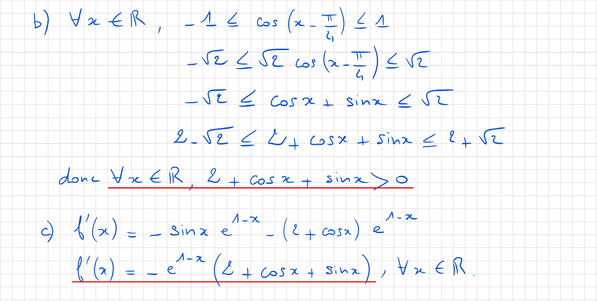 b) ∀x ∈ ℝ, -1 ≤ cos(x - π/4) ≤ 1
-√2 ≤ √2 cos(x - π/4) ≤ √2
-√2 ≤ cosx + sinx ≤ √2
2-√2 ≤ 2+ cosx + sinx ≤ 2+√2
donc ∀x ∈ ℝ, 2 + cosx + sinx > 0
c) f'(x) = - sinx e^(1-x) - (2 + cosx) e^(1-x)
f'(x) = - e^(1-x) (2 + cosx + sinx), ∀x ∈ ℝ.